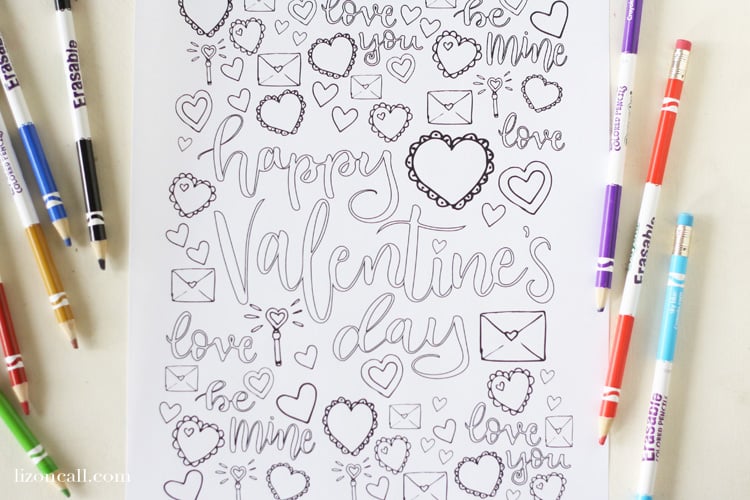 love
you
be
mine
love
happy
Valentine's
day
love
be
mine
love
you
Erasable
Erasable
COLORED PENCILS
COLORED PENCILS
Erasable
Erasable
lizoncall.com